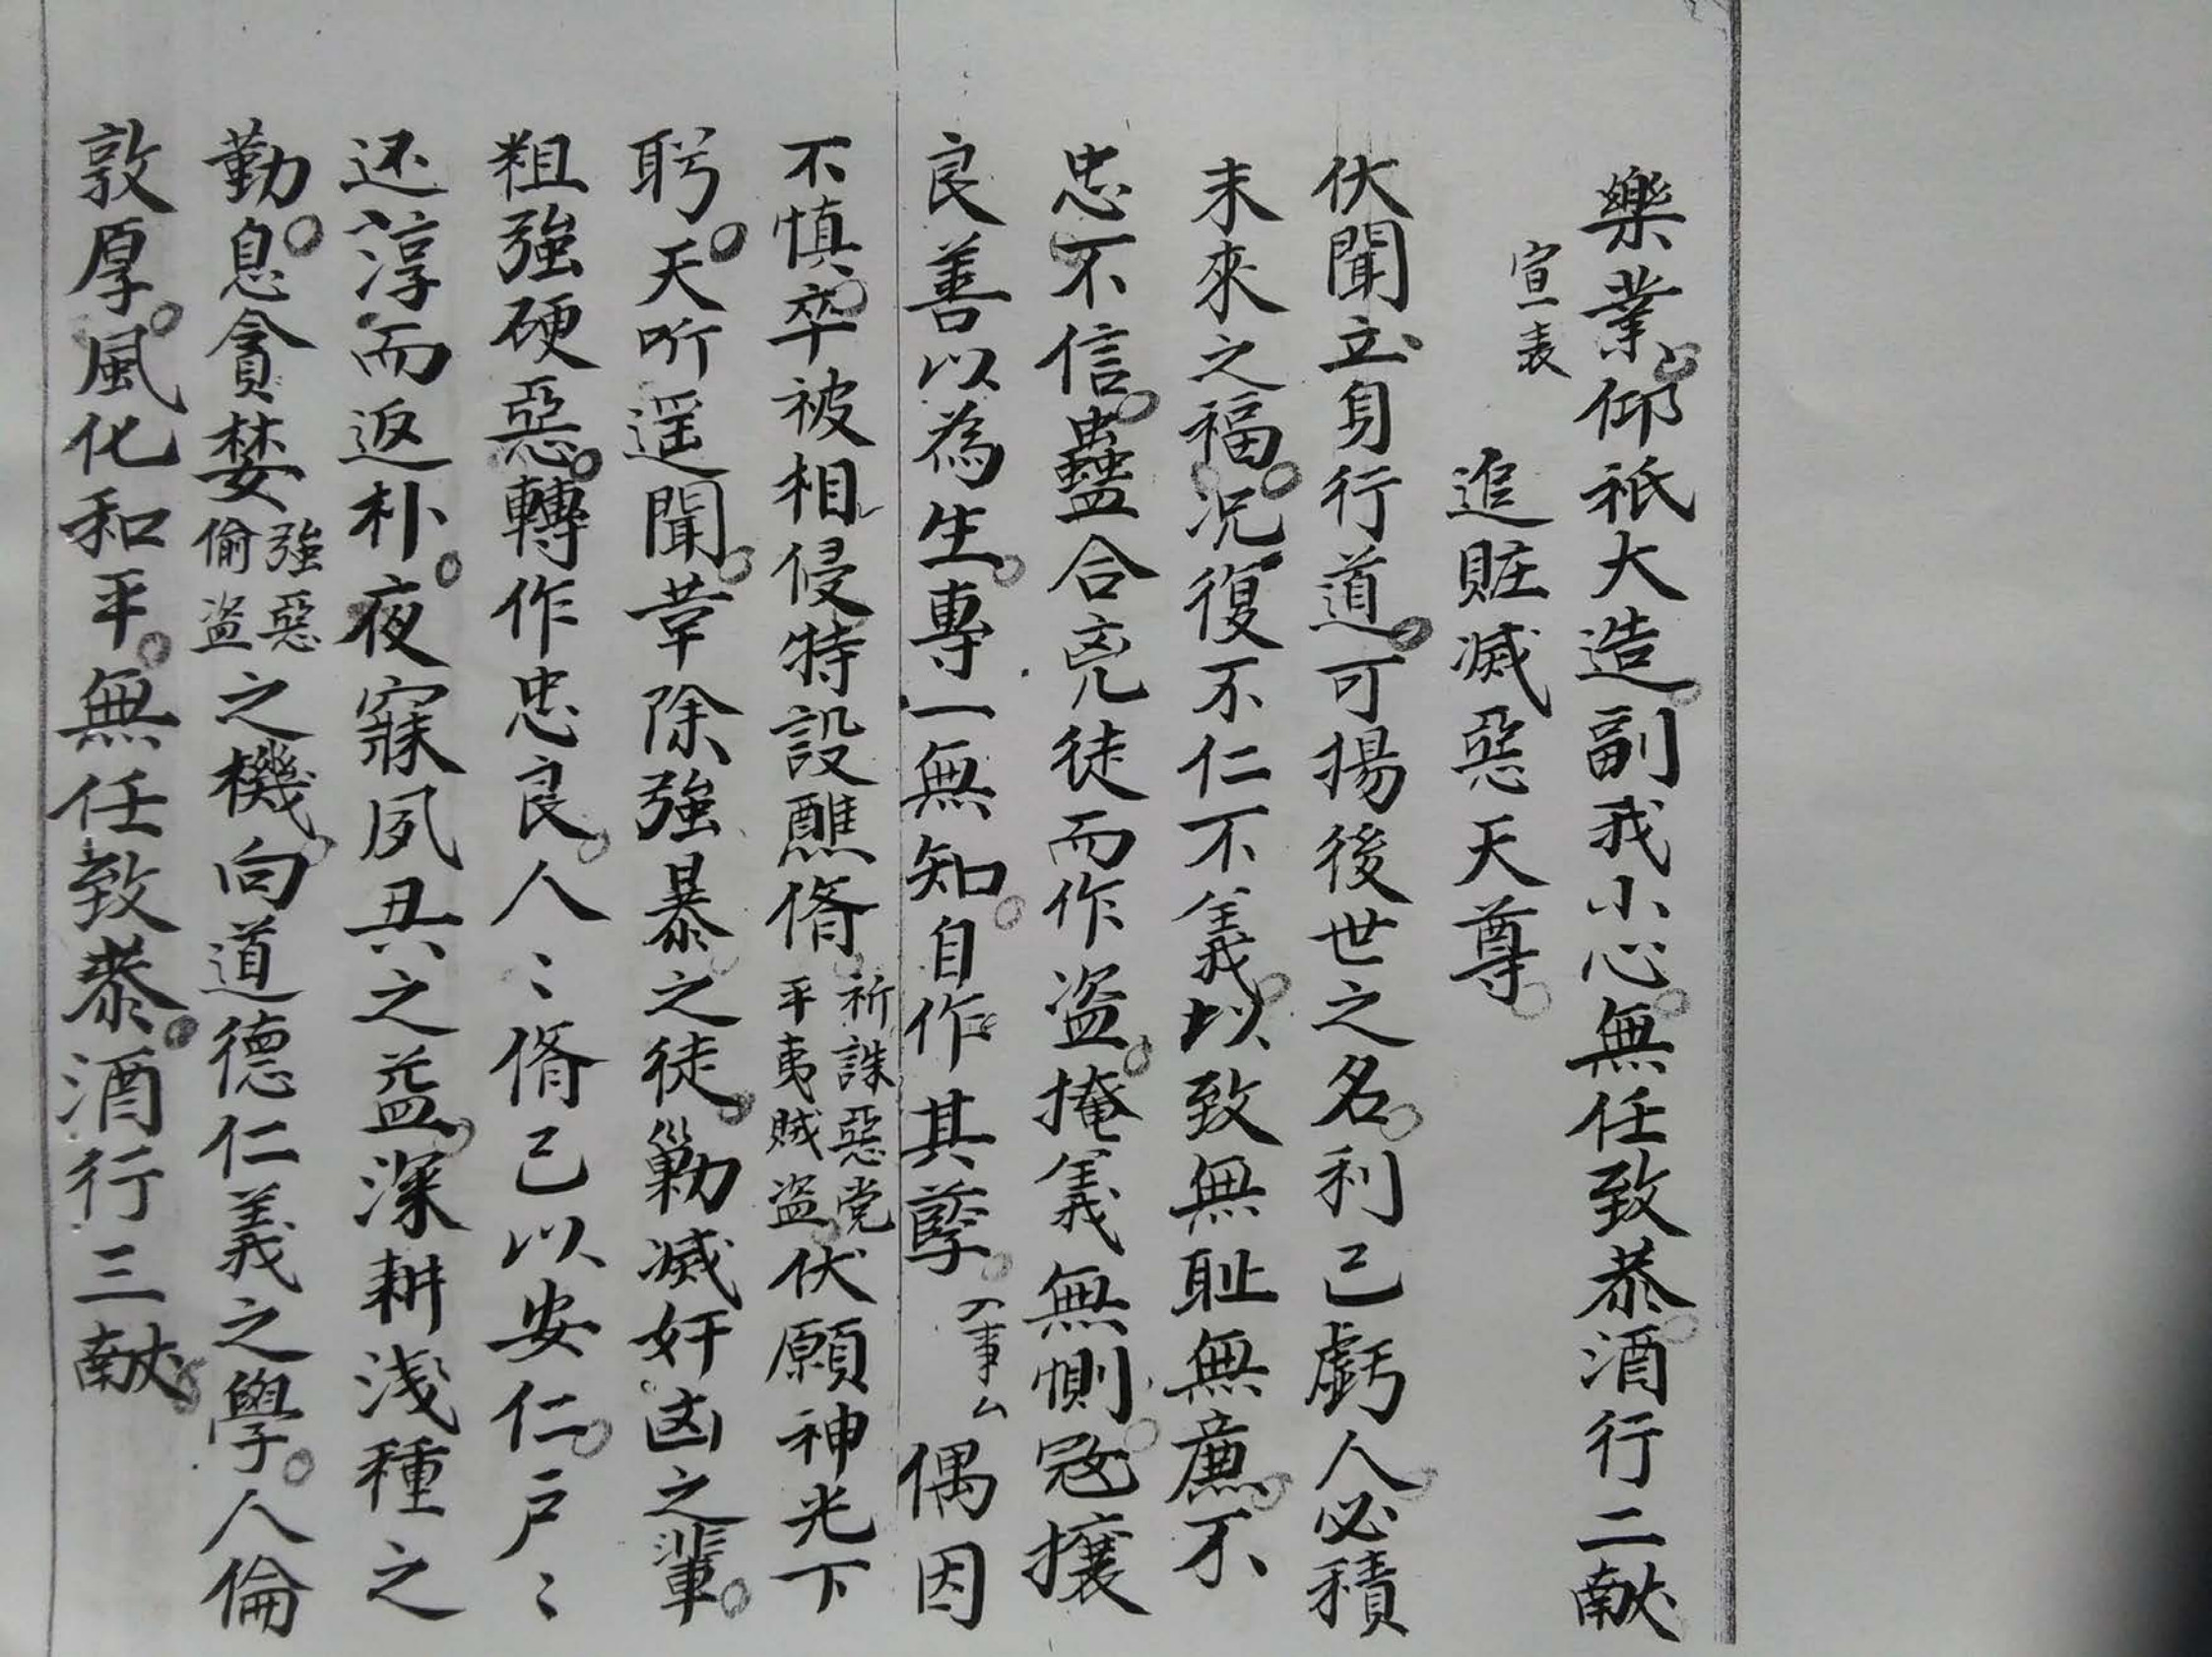 樂業。仰祇大造。副我小心。無任致恭。酒行二献
宣表
追賍滅惡天尊。
伏聞立身行道。可揚後世之名。利己虧人。必積
末來之福。况復不仁不義。以致無耻無亷。不
忠不信。蠱合兇徒而作盗。掩義無惻。冦攘
良善以為生。專一無知。自作其孽。入事ム 偶因
不慎。卒被相侵特設醮脩祈誅惡党平夷賊盗。伏願神光下
盻。天听遥聞。革除強暴之徒。勦滅奸凶之輩。
粗強硬惡。轉作忠良。人〻脩己以安仁。户〻
还淳而返朴。夜寐夙興之益。深耕浅種之
勤。息貪婪強惡偷盗之機。向道德仁義之學。人倫
敦厚。風化和平。無任致恭。酒行三献。